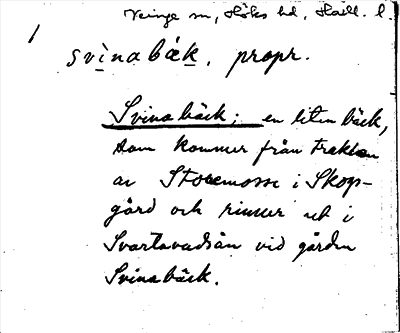 Veinge sn, Höks hd, Hall. l.
1
svinabäk, propr.
Svinabäck; en liten bäck,
som kommer från trakten
av Storemosse i Skogs-
gård och rinner ut i
Svartavadsån vid gården
Svinabäck.